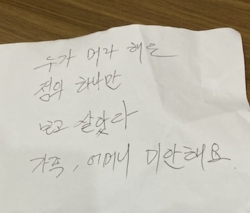 누가 머라 해도
정의 하나만
보고 살았다
가족, 어머니 미안해요.